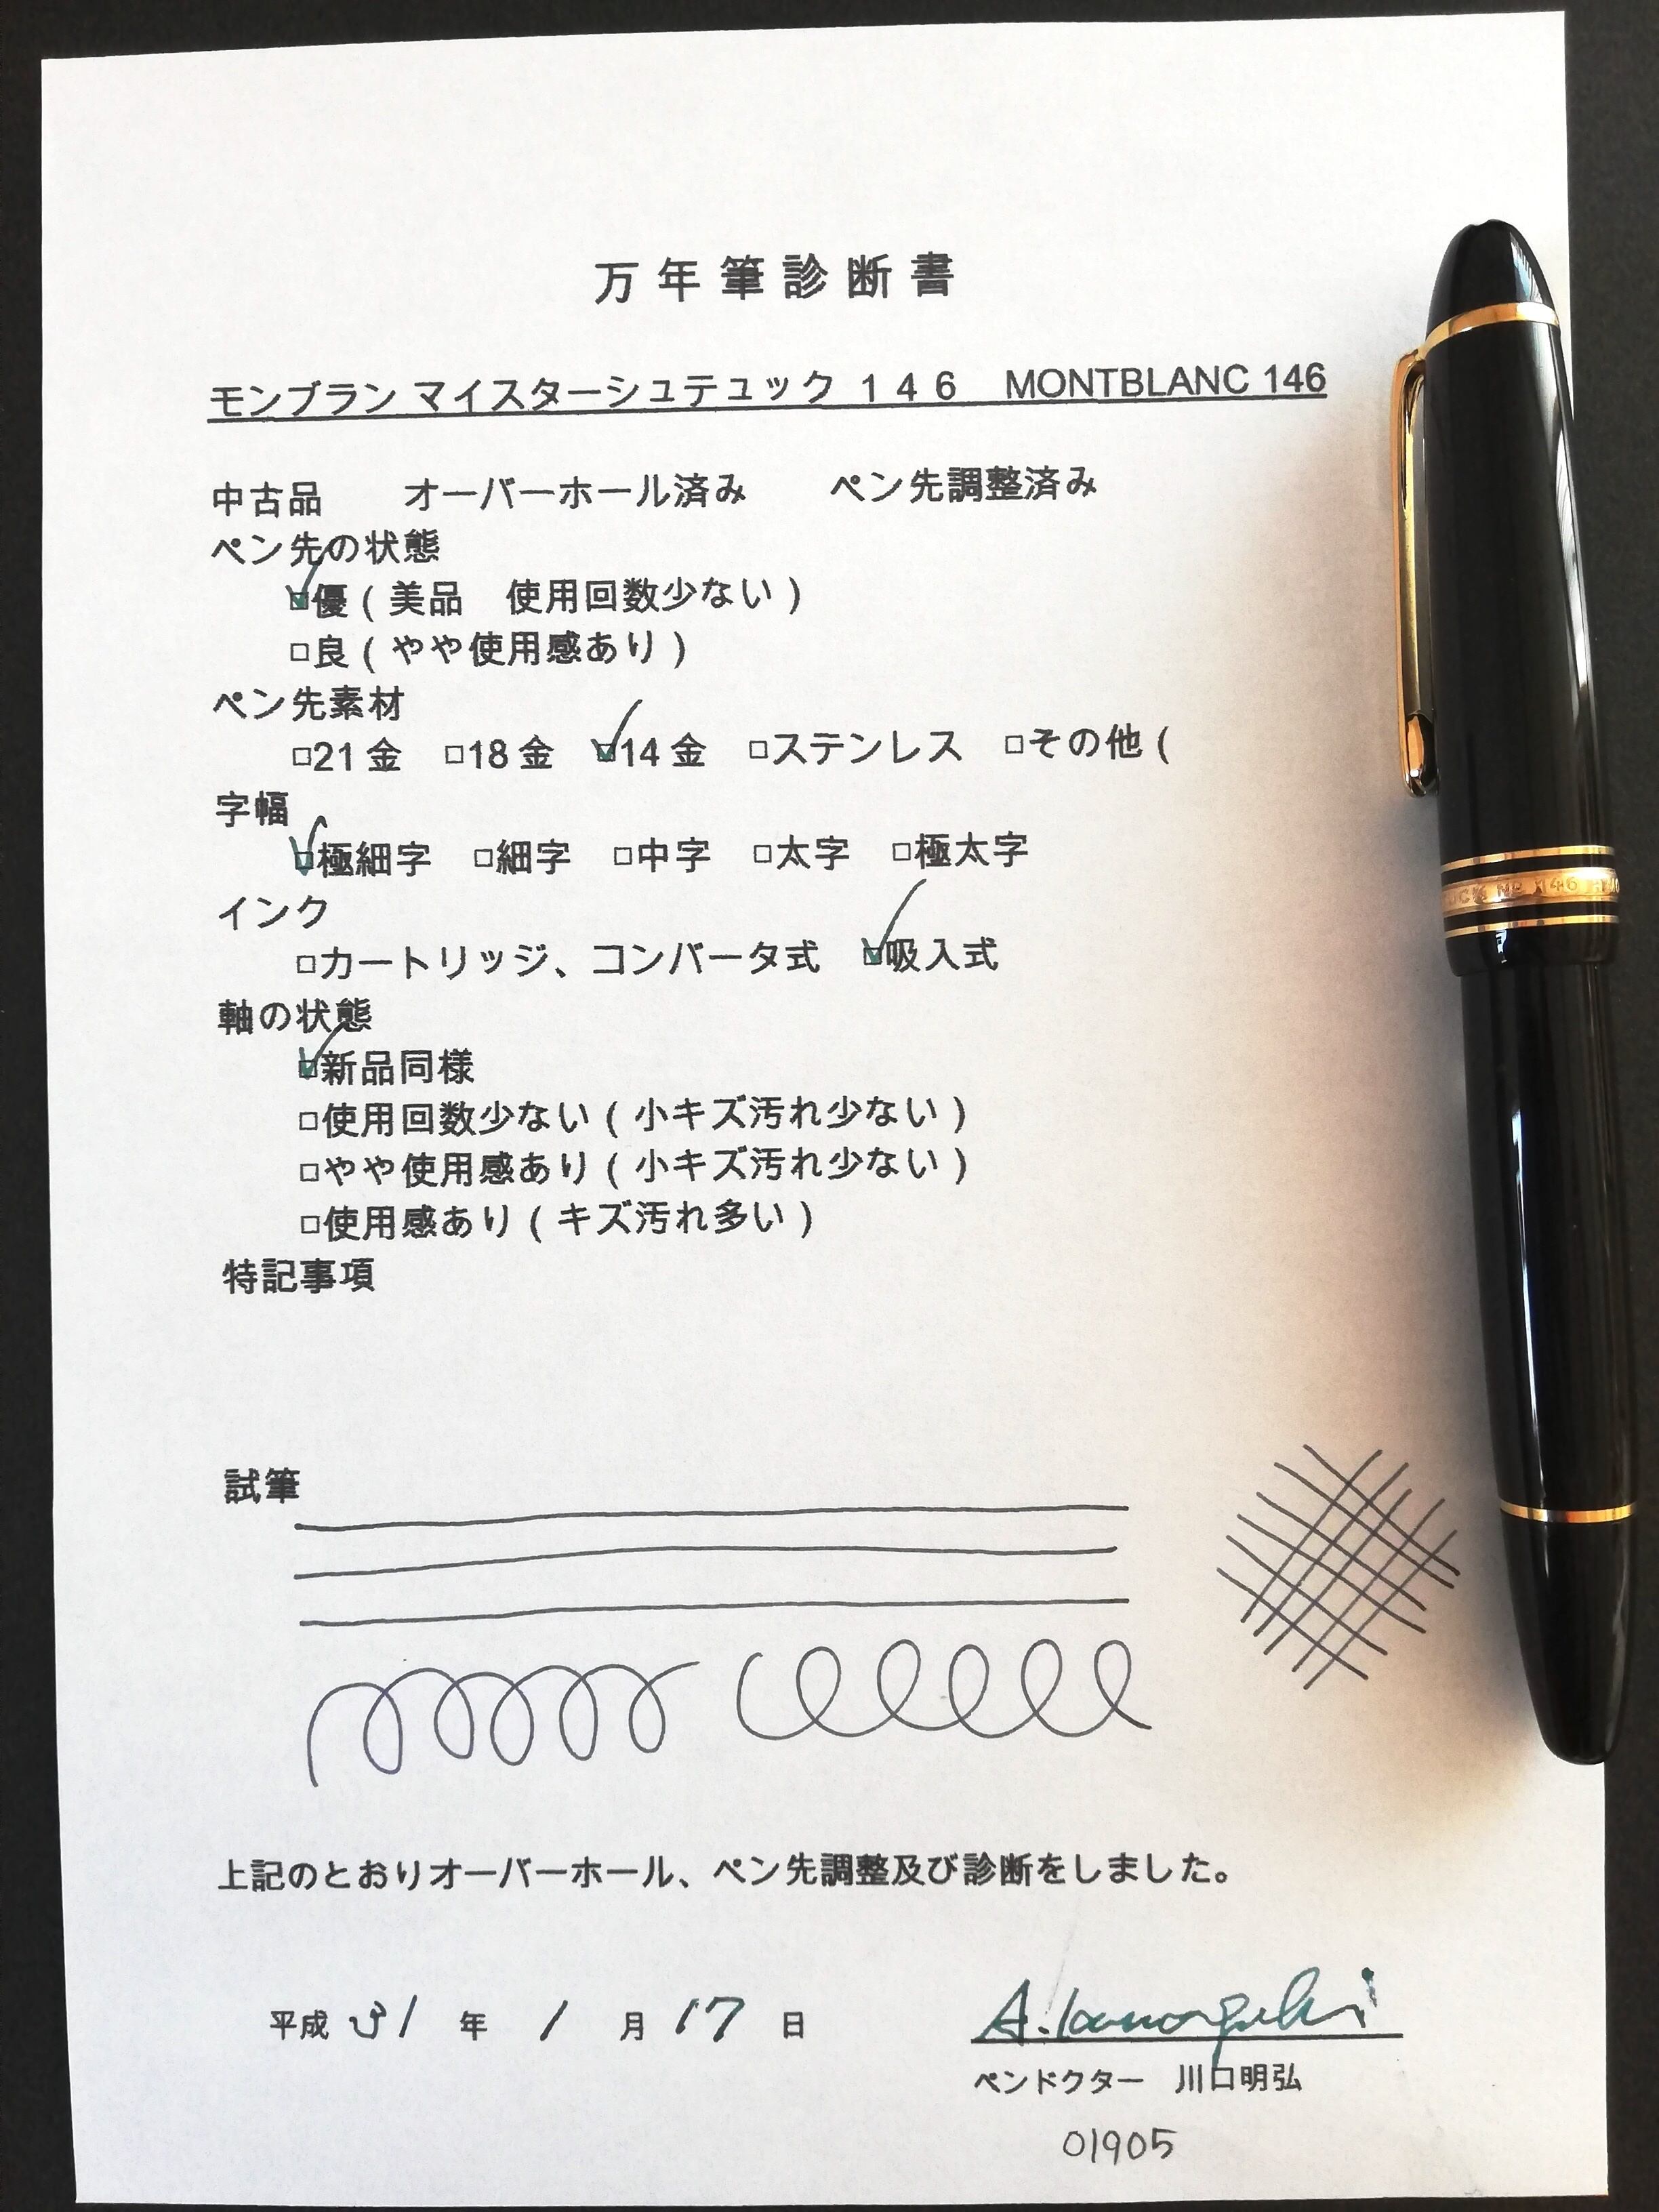 万年筆診断書
モンブラン マイスターシュテュック １４６　MONTBLANC 146
中古品　　オーバーホール済み　　ペン先調整済み
ペン先の状態
☑優（美品　使用回数少ない）
□良（やや使用感あり）
ペン先素材
□21金　□18金　☑14金　□ステンレス　□その他（
字幅
☑極細字　□細字　□中字　□太字　□極太字
インク
□カートリッジ、コンバータ式　☑吸入式
軸の状態
☑新品同様
□使用回数少ない（小キズ汚れ少ない）
□やや使用感あり（小キズ汚れ少ない）
□使用感あり（キズ汚れ多い）
特記事項
試筆
上記のとおりオーバーホール、ペン先調整及び診断をしました。
平成 31 年 1 月 17 日
A. Kawaguchi
ペンドクター　川口明弘
01905
No 146